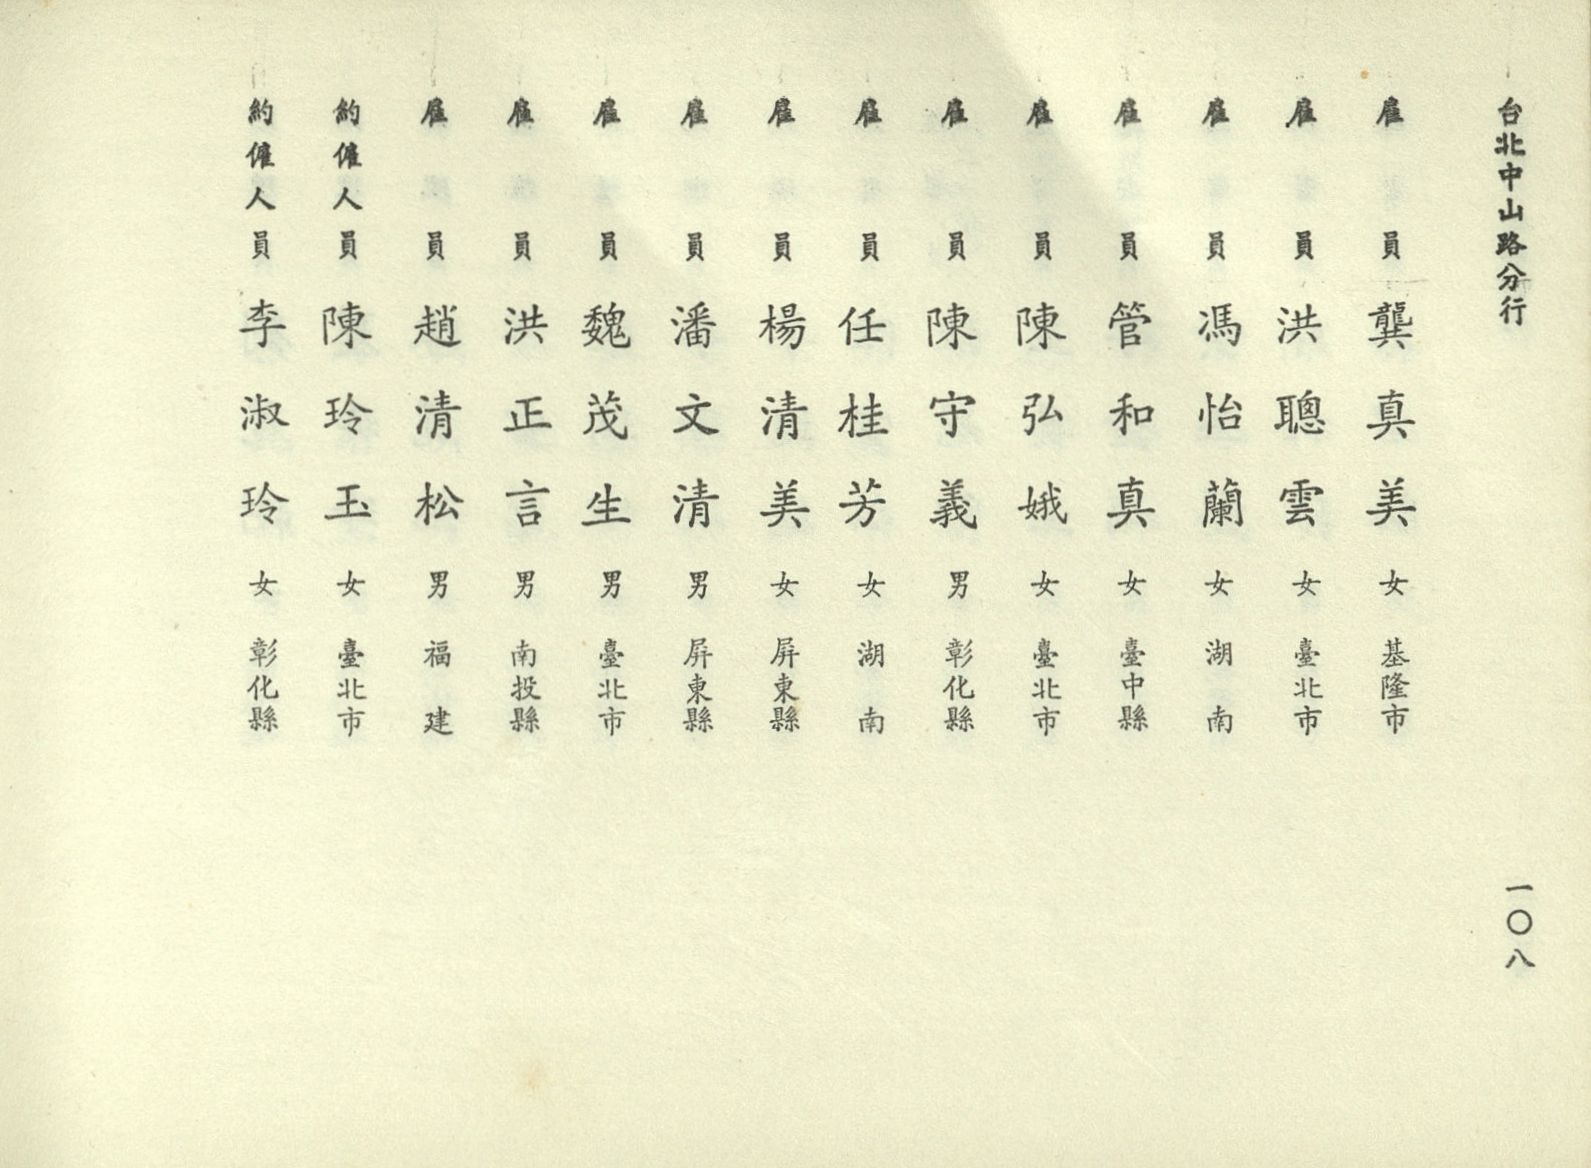 台北中山路分行
一〇八
雇員 龔真美 女 基隆市
雇員 洪聰雲 女 臺北市
雇員 馮怡蘭 女 湖南
雇員 管和真 女 臺中縣
雇員 陳弘娥 女 臺北市
雇員 陳守義 男 彰化縣
雇員 任桂芳 女 湖南
雇員 楊清美 女 屏東縣
雇員 潘文清 男 屏東縣
雇員 魏茂生 男 臺北市
雇員 洪正言 男 南投縣
雇員 趙清松 男 福建
約僱人員 陳玲玉 女 臺北市
約僱人員 李淑玲 女 彰化縣